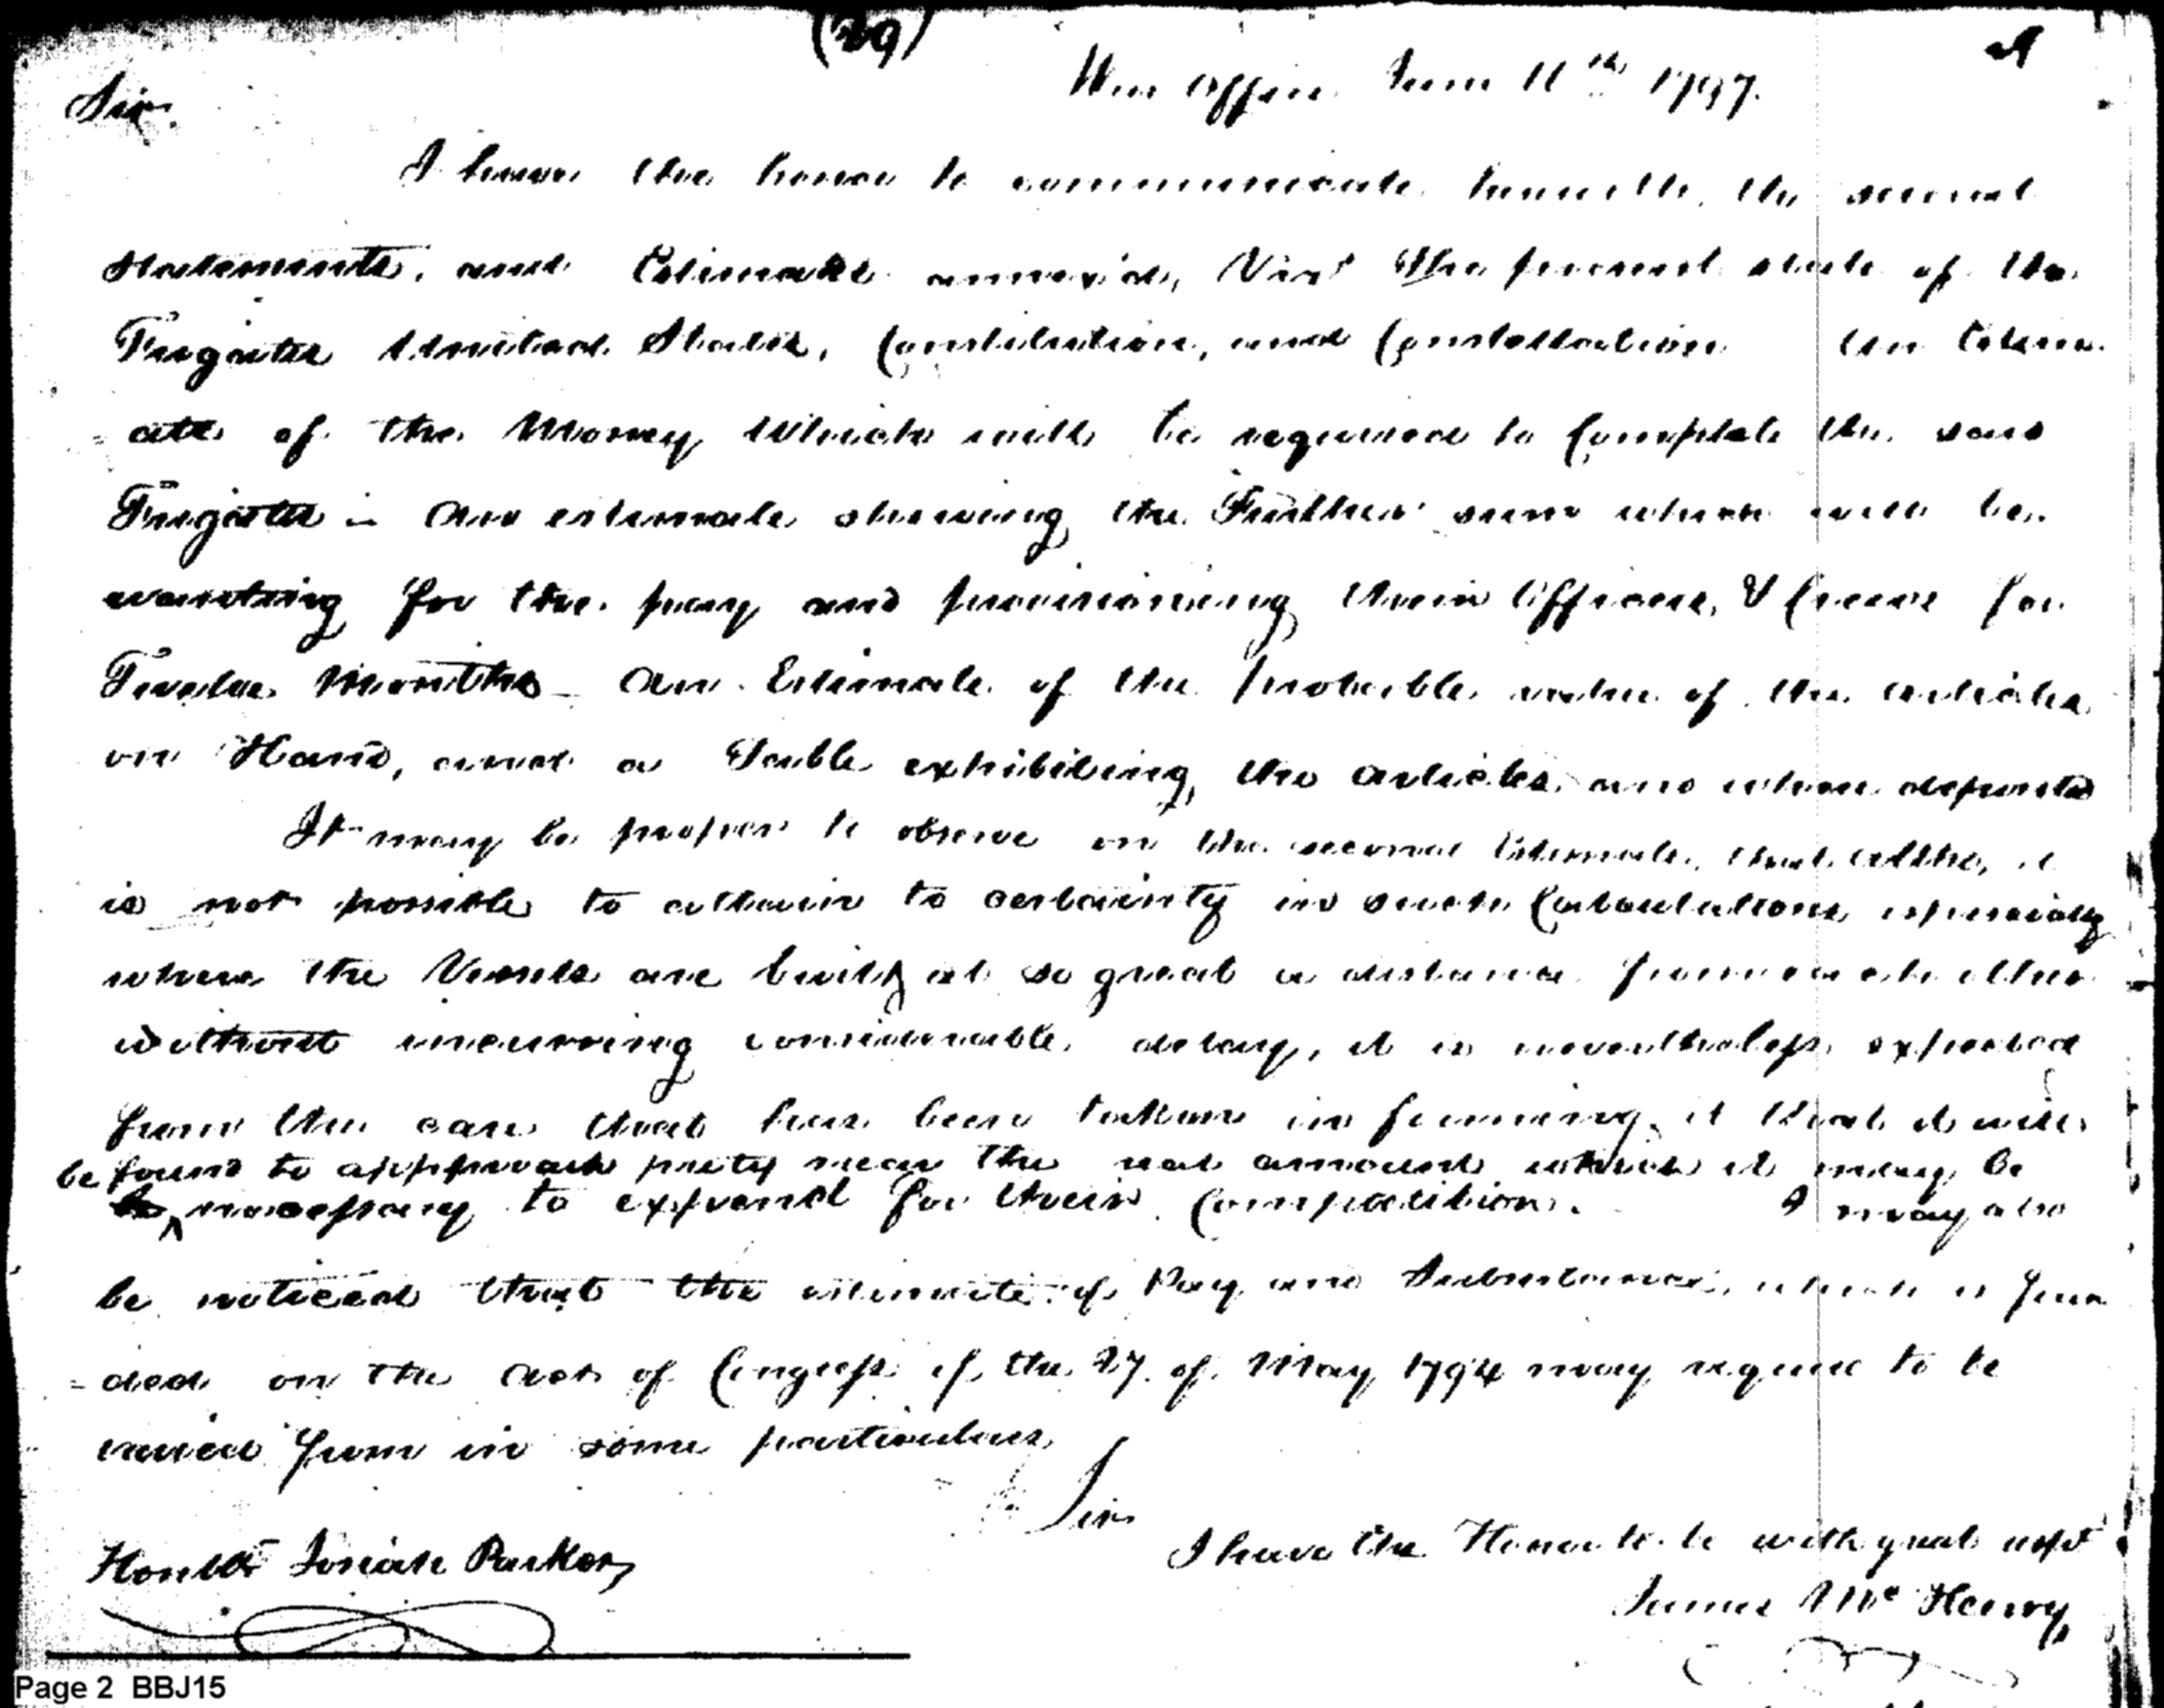 (29)
War Office June 11th 1797.
Sir.
I have the honor to communicate herewith, the several
statements, and Estimates annex'd, Viz.t The present state of the
Frigates United States, Constitution, and Constellation An Estim
=ate of the Money Which will be required to Complete the said
Frigates - An estimate shewing the Further sum which will be
wanting for the pay and provisioning their Officers, & Crews for
Twelve Months - An Estimate of the probable value of the articles
on Hand, and a Table exhibiting the articles and where deposited
It may be proper to observe on the second Estimate, that altho, it
is not possible to attain to certainty in such Calculations especially
where the Vessels are built, at so great a distance from each other
without incurring considerable delay, it is nevertheless expected
from the care that has been taken in forming it that it will
be found to approach prety near the real amount which it may be
necessary to expend for their Completion. I may also
be noticed that the estimate of Pay and Subsistance, which is foun
=ded on the Act of Congress of the 27. of May 1794 may require to be
varied from in some particulars,
Sir
I have the Honor to be with great respt
Honble Josiah Parker,
James McHenry,
Page 2 BBJ15